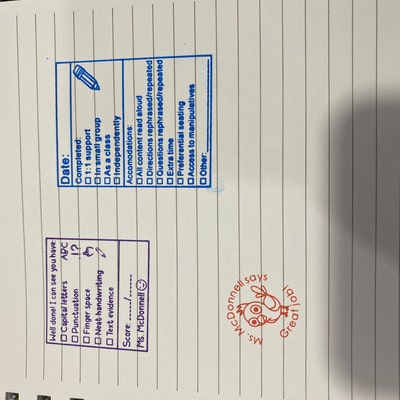 Date:
Completed:
1:1 support
In small group
As a class
Independently
Accomodations:
All content read aloud
Directions rephrased/repeated
Questions rephrased/repeated
Extra time
Preferential seating
Access to manipulatives
Other:
Well done! I can see you have:
Capital letters ABC
Punctuation !?
Finger space
Neat handwriting
Text evidence
Score: ____/____
Ms. McDonnell
Ms. McDonnell says
Great job!